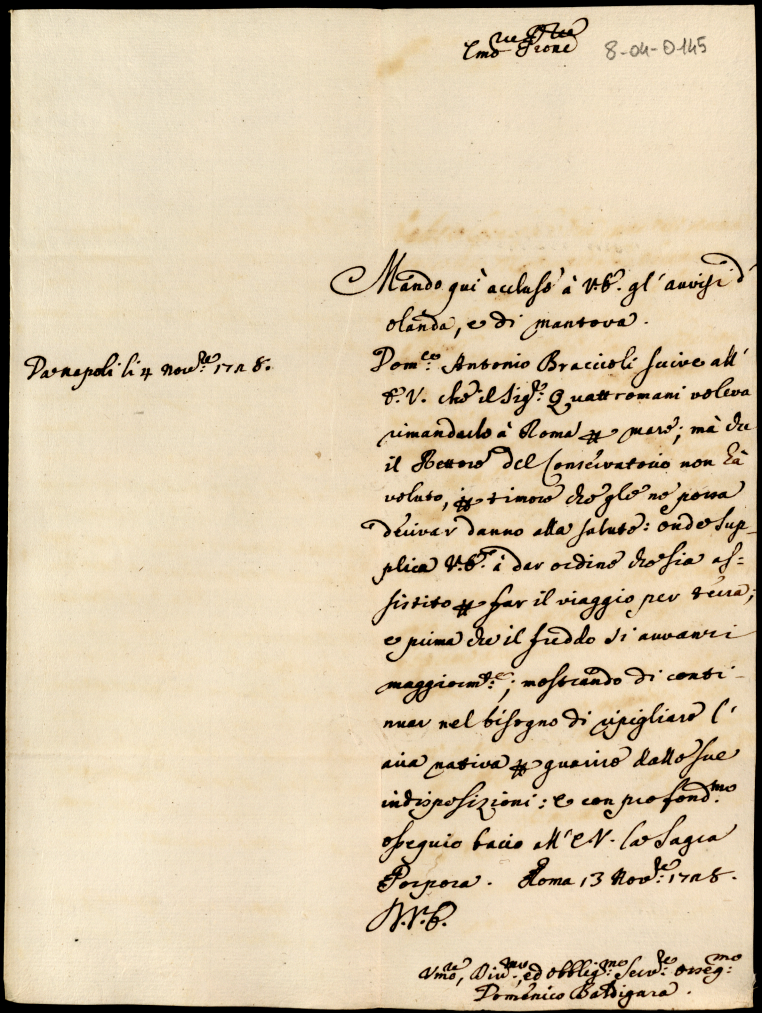 Emo Prone 8-04-0145
Mando quì accluso à V.E. gl'auvisi d'
olanda, e di mantova.
Da napoli li 4 Novre 1728.
Domco Antonio Braccioli scrive all'
E.V. che il Sigr Quattromani voleva
rimandarlo à Roma per mare; mà che
il Rettore del Conservatorio non hà
voluto, per timore che gle ne possa
derivar danno alla salute: onde sup-
plica V.E. à dar ordine che sia as=
sistito per far il viaggio per terra;
e prima che il freddo si auvanzi
maggiormte; mostrando di conti-
nuar nel bisogno di ripigliare l'
aria nativa per guarire dalle sue
indisposizioni: e con profondmo
ossequio bacio all'E.V. la Sagra
Porpora. Roma 13 Novre 1728.
D.V.E.
Vmo, Divmo, ed obbligmo Servre ossegmo
Domenico Baldigara.